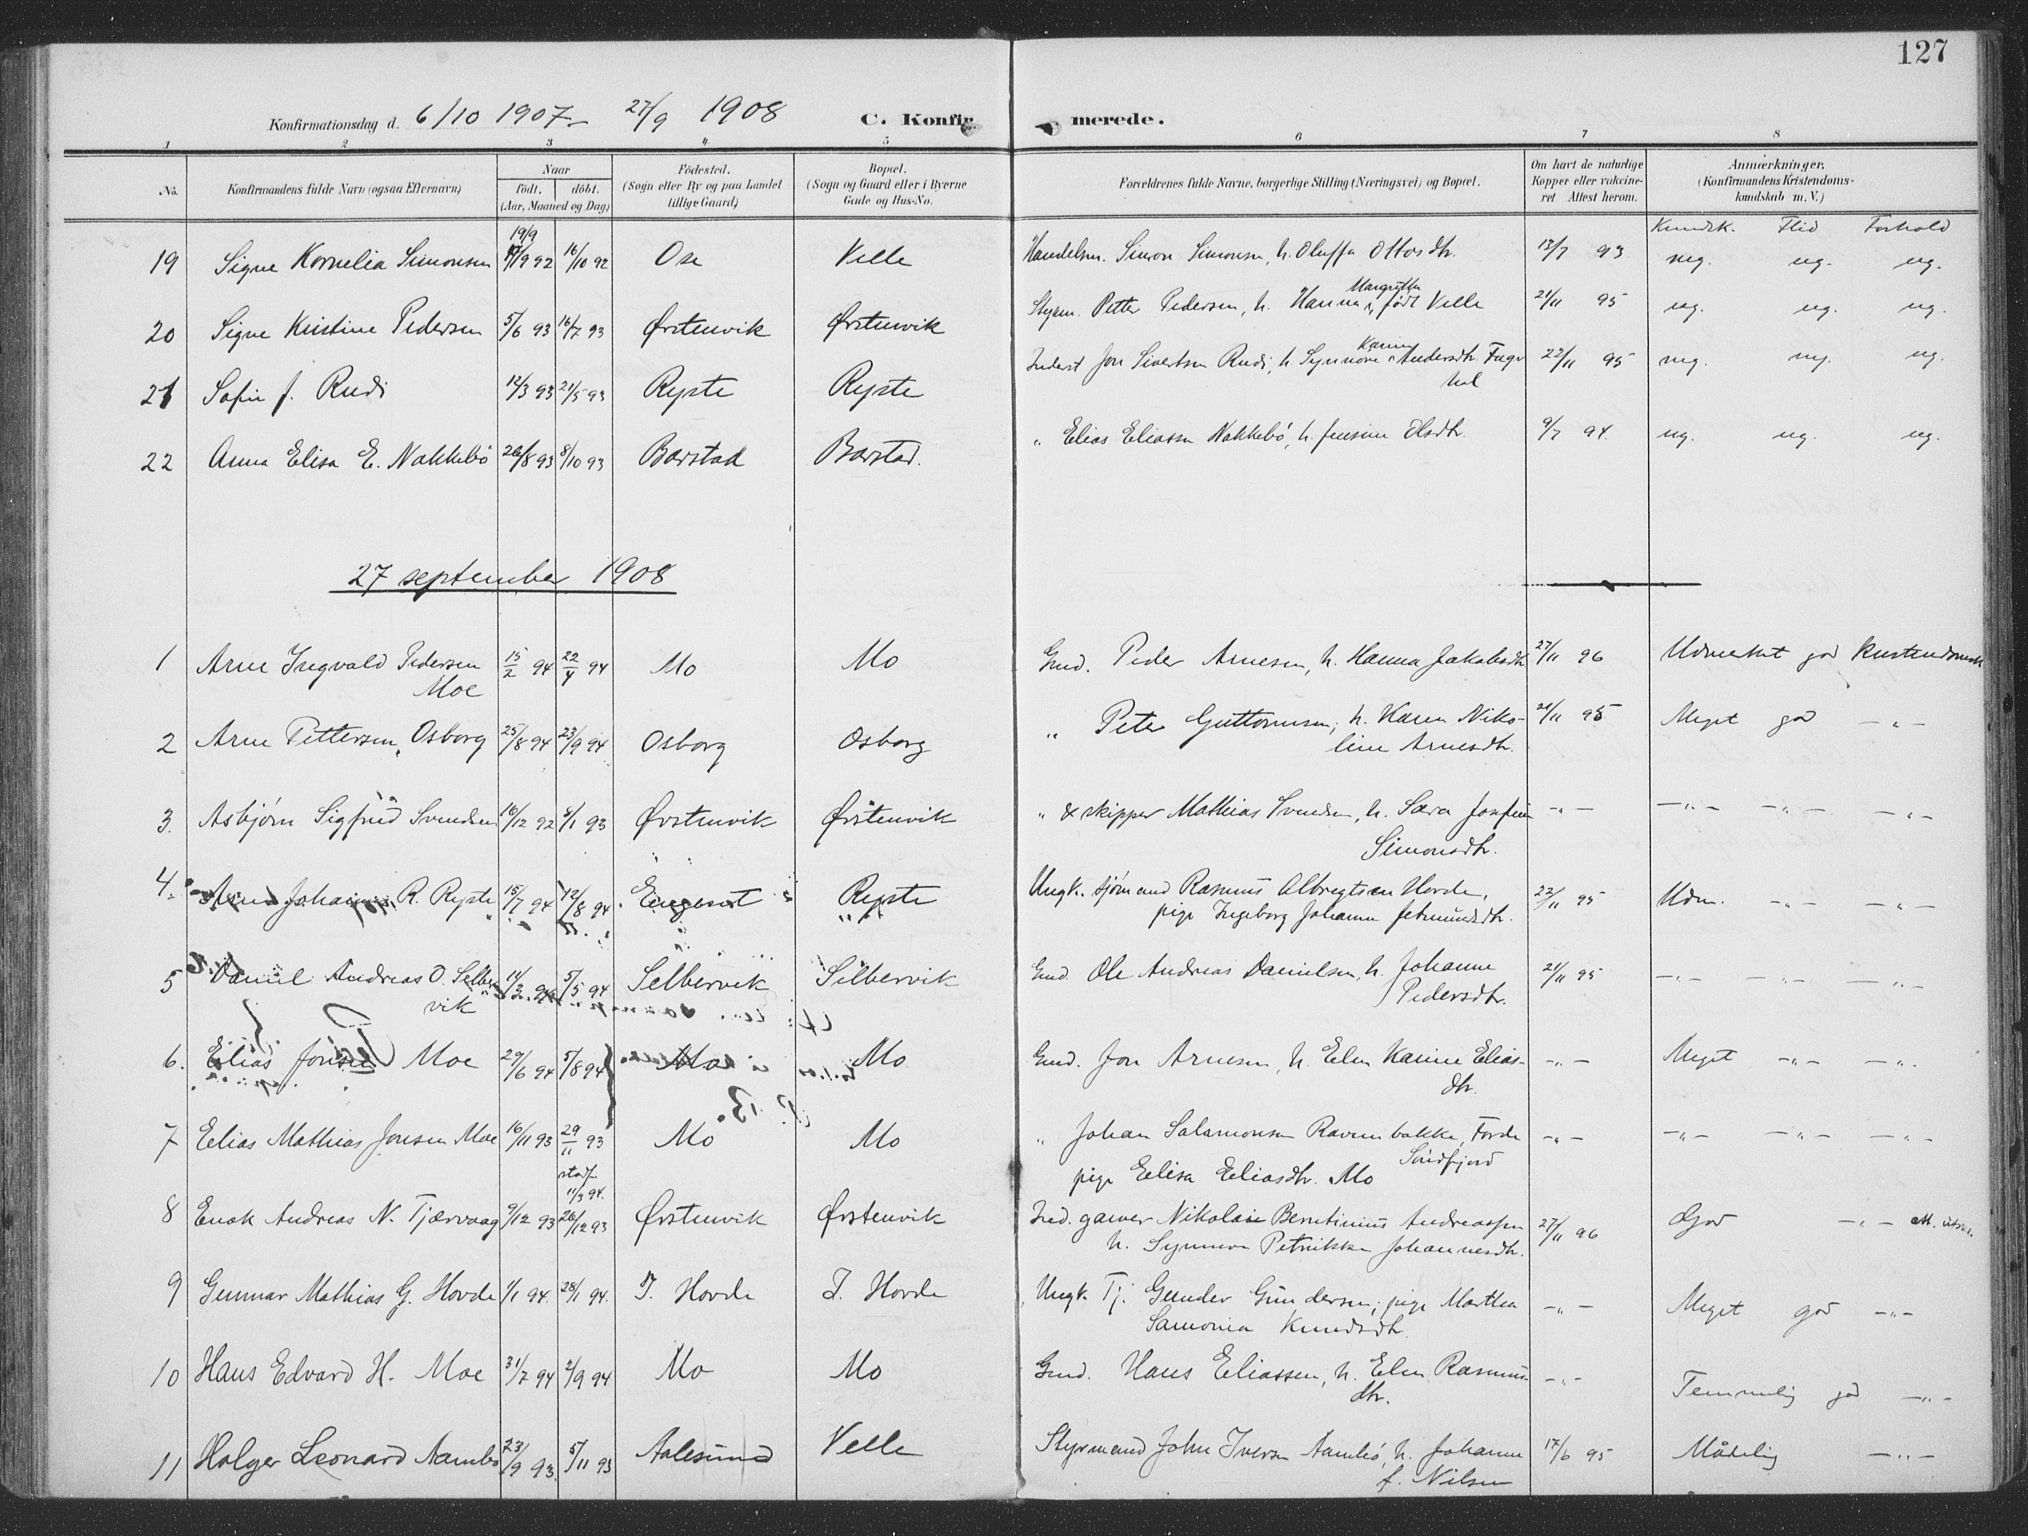 127
Konfirmationsdag d. 6/10 1907 - 27/9 1908 C. Konfirmerede.
1 2 3 4 5 6 7 8
No. Konfirmandens fulde Navn (ogsaa Efternavn) Naar födt. döbt. (Aar, Maaned og Dag) Födested. (Sogn eller By og paa Landet tillige Gaard) Bopæl. (Sogn og Gaard eller i Byerne Gade og Hus-No. Forældrenes fulde Navne, borgerlige Stilling (Næringsvei) og Bopæl. Om havt de naturlige Kopper eller vakcineret Attest herom. Anmærkninger. (Konfirmandens Kristendomskundskab m. V.)
Kundsk. Flid Forhold
19/9
19 Signe Kornelia Simonsen 17/9 92 16/10 92 Ose Velle Handelsm. Simon Simonsen, h. Oluffa Ottosdtr. 13/7 93 meg. ug. ug.
Margrethe
20 Signe Kristine Pedersen 5/6 93 16/7 93 Ørstenvik Ørstenvik Styrm. Petter Pedersen, h. Hanna født Velle 21/11 95 ug. ug. ug.
Karine
21 Sofie J. Rudi 12/3 93 21/5 93 Ryste Ryste Inderst Jon Sivertsen Rudi, h. Synnøve Andersdtr. 22/11 95 meg. ug.
22 Anna Elisa E. Nakkebö 26/8 93 8/10 93 Barstad Barstad. " Elias Eliassen Nakkebö, h. Jensine Olsdtr. 9/7 94. ug. ug. ug.
27 september 1908
1 Arne Ingvald Pedersen 15/2 94 22/4 94 Mo Mo Gmd. Peder Arnesen, h. Hanna Jakobsdtr. 27/11 96 Udmerket god kristendomsk
Moe
2 Arne Pettersen Osborg 25/8 94 23/9 94 Osborg Osborg " Peter Guttormsen, h. Karen Niko-
line Arnesdtr. 21/11 95 Meget god -"-
3. Asbjørn Sigfred Svendsen 16/12 92 8/1 93 Ørstenvik Ørstenvik " & skipper Mathias Svendsen, h. Sara Josefine -"- -"- -"- -"-
Simonsdtr.
4. Johannes R. Ryste 15/7 94 12/8 94 Engeset Ryste Ungk. sjømand Rasmus Albregtsen Hovde, 22/11 95 Udm. -"- -"-
pige Ingeborg Johanne Jetmundsdtr.
5 Daniel Andreas O. Selber- 5/5 94 Selbervik Selbervik Gmd. Ole Andreas Danielsen, h. Johanne 21/11 95 -"- -"- -"-
vik Pedersdtr.
6. Elias Jonsen Moe 29/6 94 5/8 94 Mo Mo Gmd. Jon Arnesen, h. Elen Karine Elias- -"- Meget -"- -"-
dtr.
7 Elias Mathias Jonsen Moe 16/11 93 29/11 93 Mo Mo " Johan Salamonsen Ravnebakke, Førde -"- -"- -"- -"-
Söndfjord
pige Elisa Eliasdtr. Mo
stadf. 11/3 94.
8 Enok Andreas N. Tjærvaag 9/12 93 26/12 93 Ørstenvik Ørstenvik Ind. garver Nikolaie Berntinius Andreassen 27/11 96 God -"-
h. Synnøve Petrikke Johannesdtr.
9 Gunnar Mathias G. Hovde 1/1 94. 28/1 94. I. Hovde I. Hovde Ungk. Tj. Gunder Gundersen, pige Marthea -"- Meget god -"-
Samonia Knudsdtr.
10 Hans Edvard H. Moe 31/7 94 2/9 94 Mo Mo Gmd. Hans Eliassen, h. Elen Rasmus- -"- Temmelig god -"-
dtr.
11 Holger Leonard Aambø 23/9 93. 5/11 93 Aalesund Velle Styrmand John Iversen Aambø, h. Johanne 17/6 95 Mådelig -"-
f. Nilsen